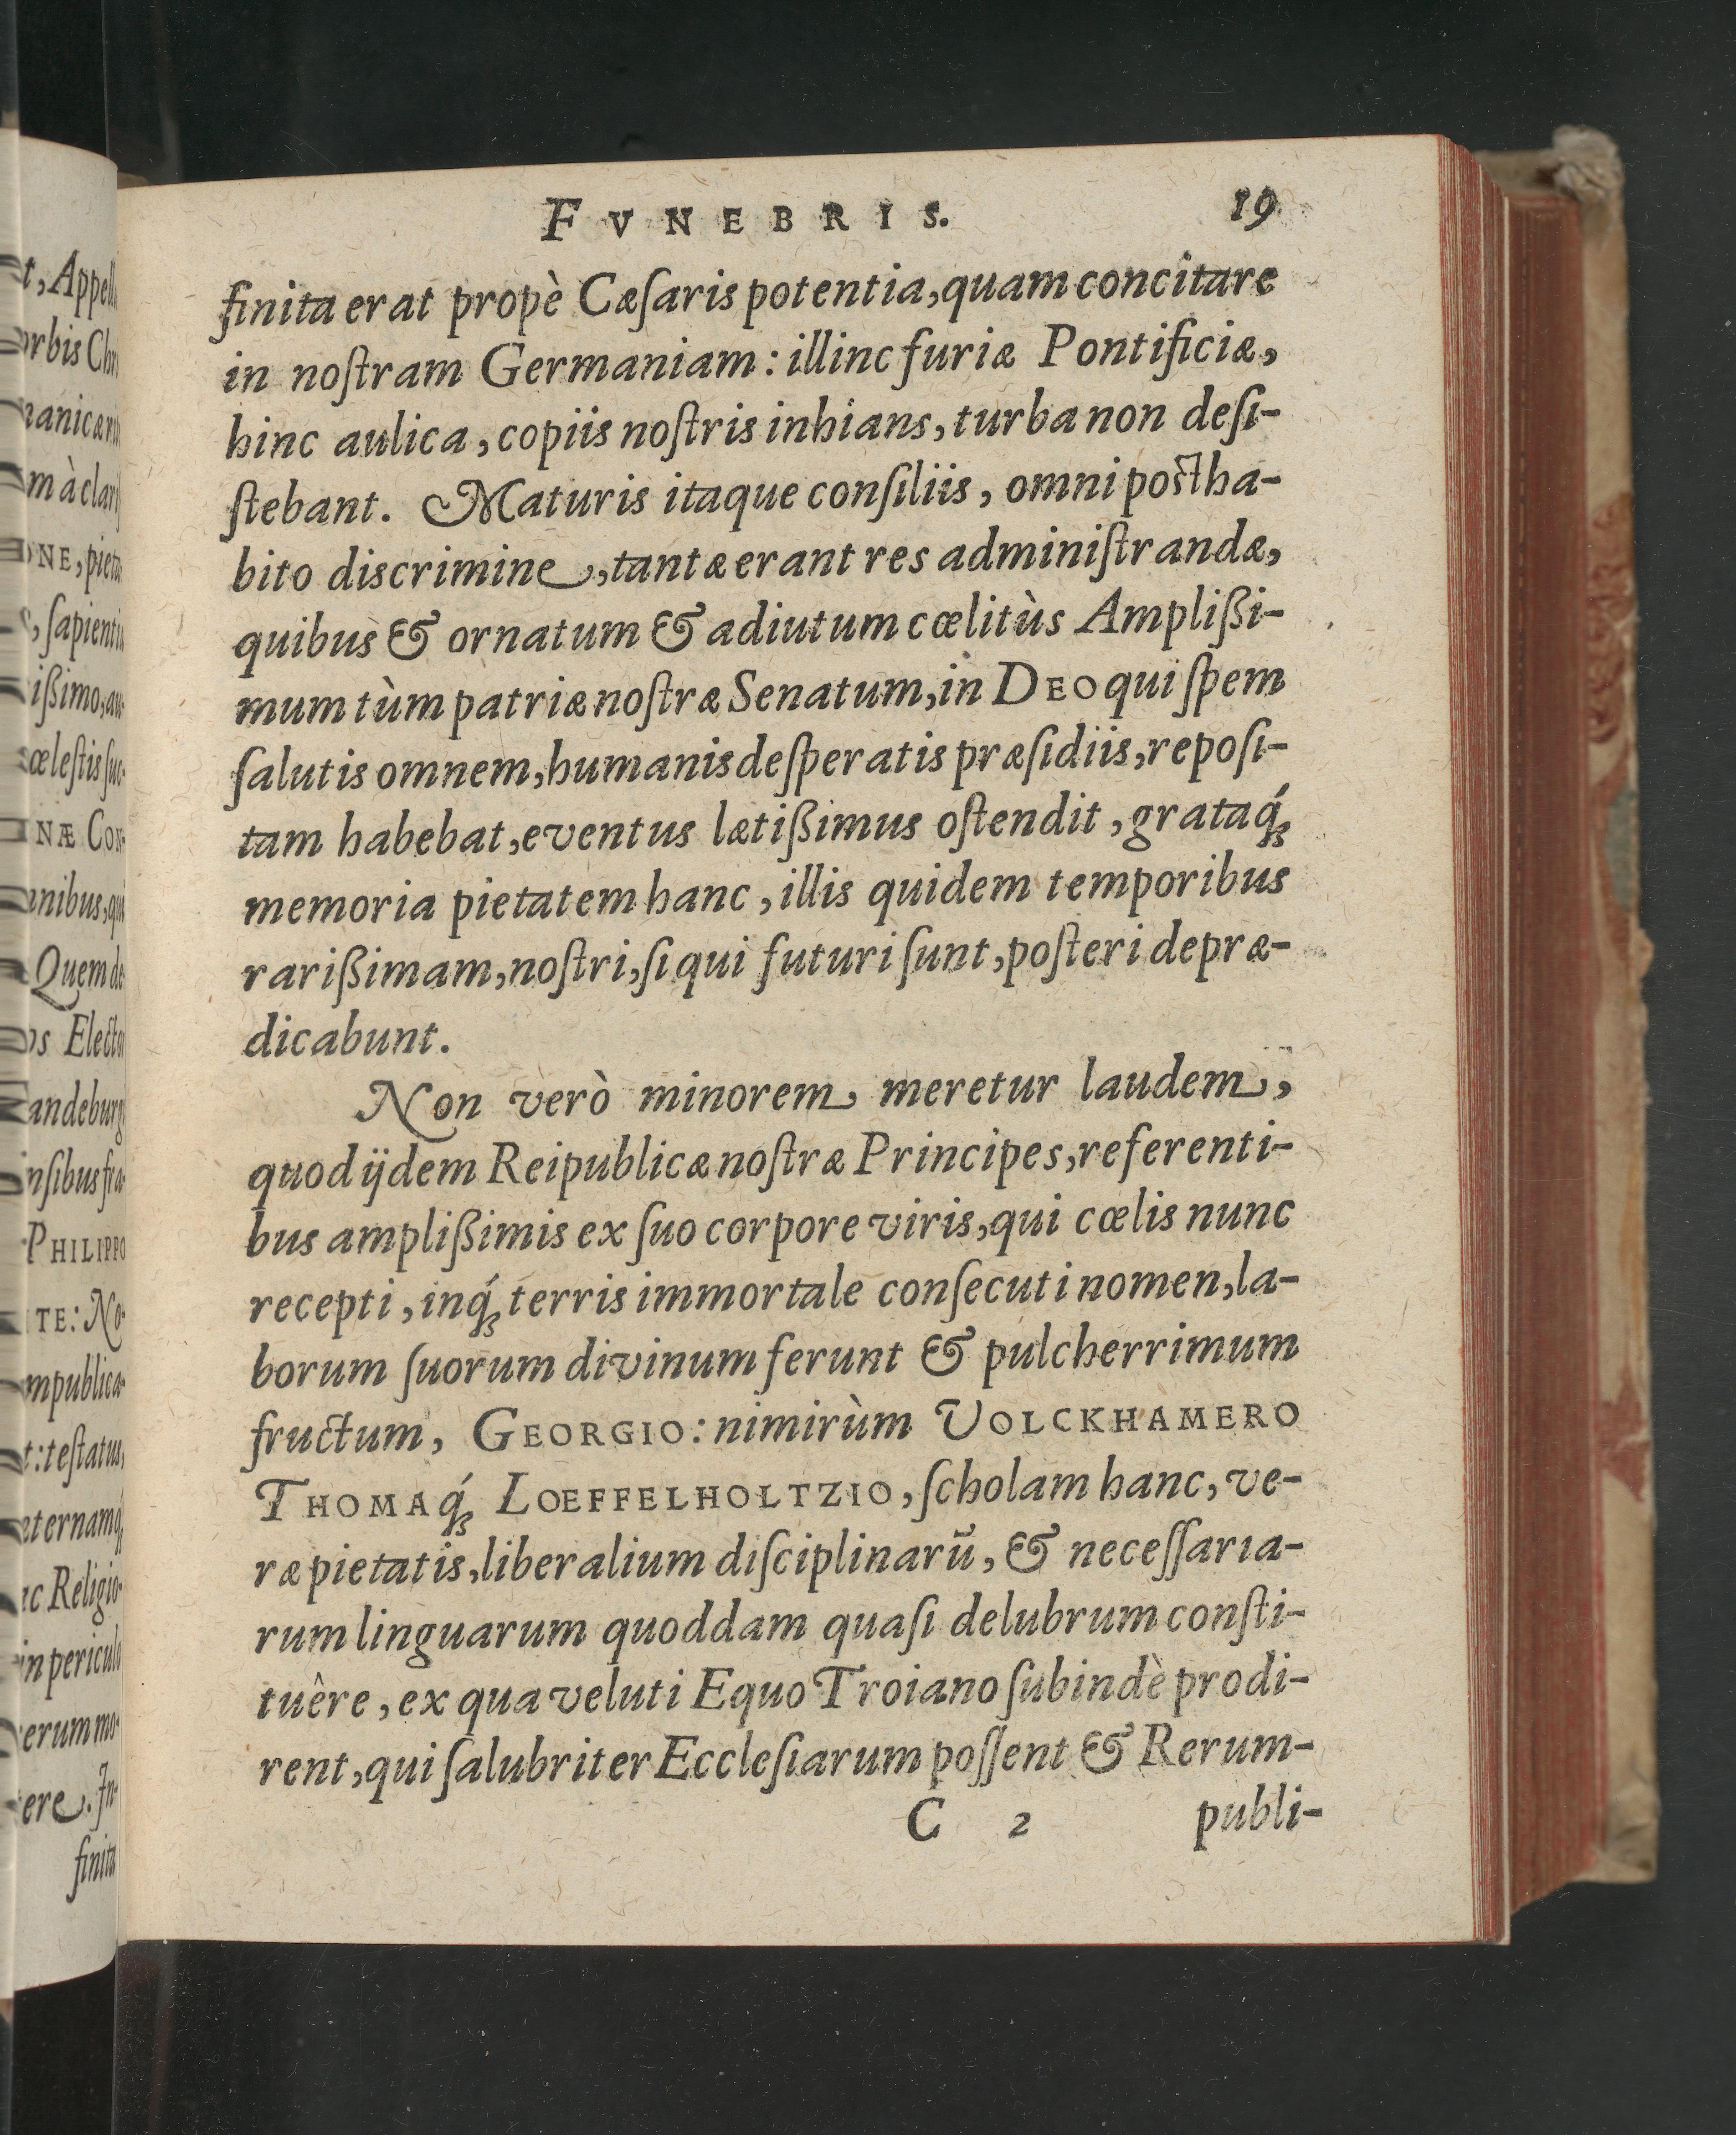 FVNEBRIS. 19
finita erat propè Cæſaris potentia, quam concitare
in noſtram Germaniam: illinc furiæ Pontificiæ,
hinc aulica, copiis noſtris inhians, turba non deſi-
ſtebant. Maturis itaque conſiliis, omni poſtha-
bito discrimine, tantæ erant res adminiſtrandæ,
quibus & ornatum & adiutum cœlitùs Amplißi-
mum tùm patriæ noſtræ Senatum, in DEO qui ſpem
ſalutis omnem, humanis deſperatis præſidiis, repoſi-
tam habebat, eventus lætißimus oſtendit, grataq́ꝫ
memoria pietatem hanc, illis quidem temporibus
rarißimam, noſtri, ſi qui futuri ſunt, poſteri depræ-
dicabunt.
Non verò minorem meretur laudem,
quod ijdem Reipublicæ noſtræ Principes, referenti-
bus amplißimis ex ſuo corpore viris, qui cœlis nunc
recepti, inq́ꝫ terris immortale conſecuti nomen, la-
borum ſuorum divinum ferunt & pulcherrimum
fructum, GEORGIO: nimirùm VOLCKHAMERO
THOMAq́ꝫ LOEFFELHOLTZIO, ſcholam hanc, ve-
ræ pietatis, liberalium diſciplinarũ, & neceſſaria-
rum linguarum quoddam quaſi delubrum conſti-
tuêre, ex qua veluti Equo Troiano ſubindè prodi-
rent, qui ſalubriter Eccleſiarum poſſent & Rerum-
C 2 publi-